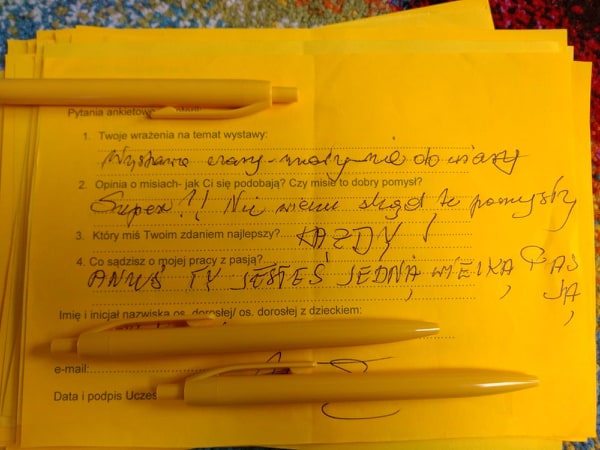 Pytania ankietowe
1. Twoje wrażenia na temat wystawy:
Wystawa nie do wiary
2. Opinia o misiach- jak Ci się podobają? Czy misie to dobry pomysł?
Super!! Nie wiem skąd te pomysły
3. Który miś Twoim zdaniem najlepszy?
KAŻDY!
4. Co sądzisz o mojej pracy z pasją?
ANUŚ TY JESTEŚ JEDNĄ WIELKĄ PAS
JĄ,
Imię i inicjał nazwiska os. dorosłej/ os. dorosłej z dzieckiem:
e-mail:
Data i podpis Ucześ